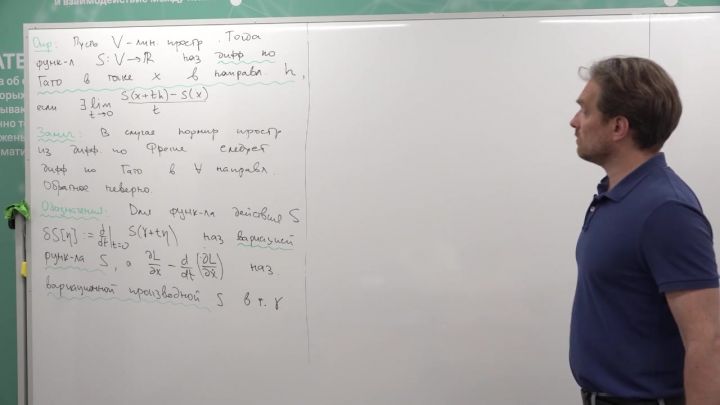 и взаимодействие между
Опр: Пусть V - лин. простр. Тогда
функ-л S: V → ℝ наз дифф по
Гато в точке x в направл. h,
если ∃ lim_{t→0} (S(x+th) - S(x))/t
Замеч: В случае нормир простр
из дифф. по Фреше следует
дифф по Гато в ∀ направл.
Обратное неверно.
Обозначения: Для функ-ла действия S
δS[η] := d/dt|_{t=0} S(γ+tη) наз вариацией
функ-ла S, а ∂L/∂x - d/dt (∂L/∂ẋ) наз.
вариационной производной S в т. γ